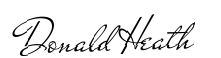 Donald Heath